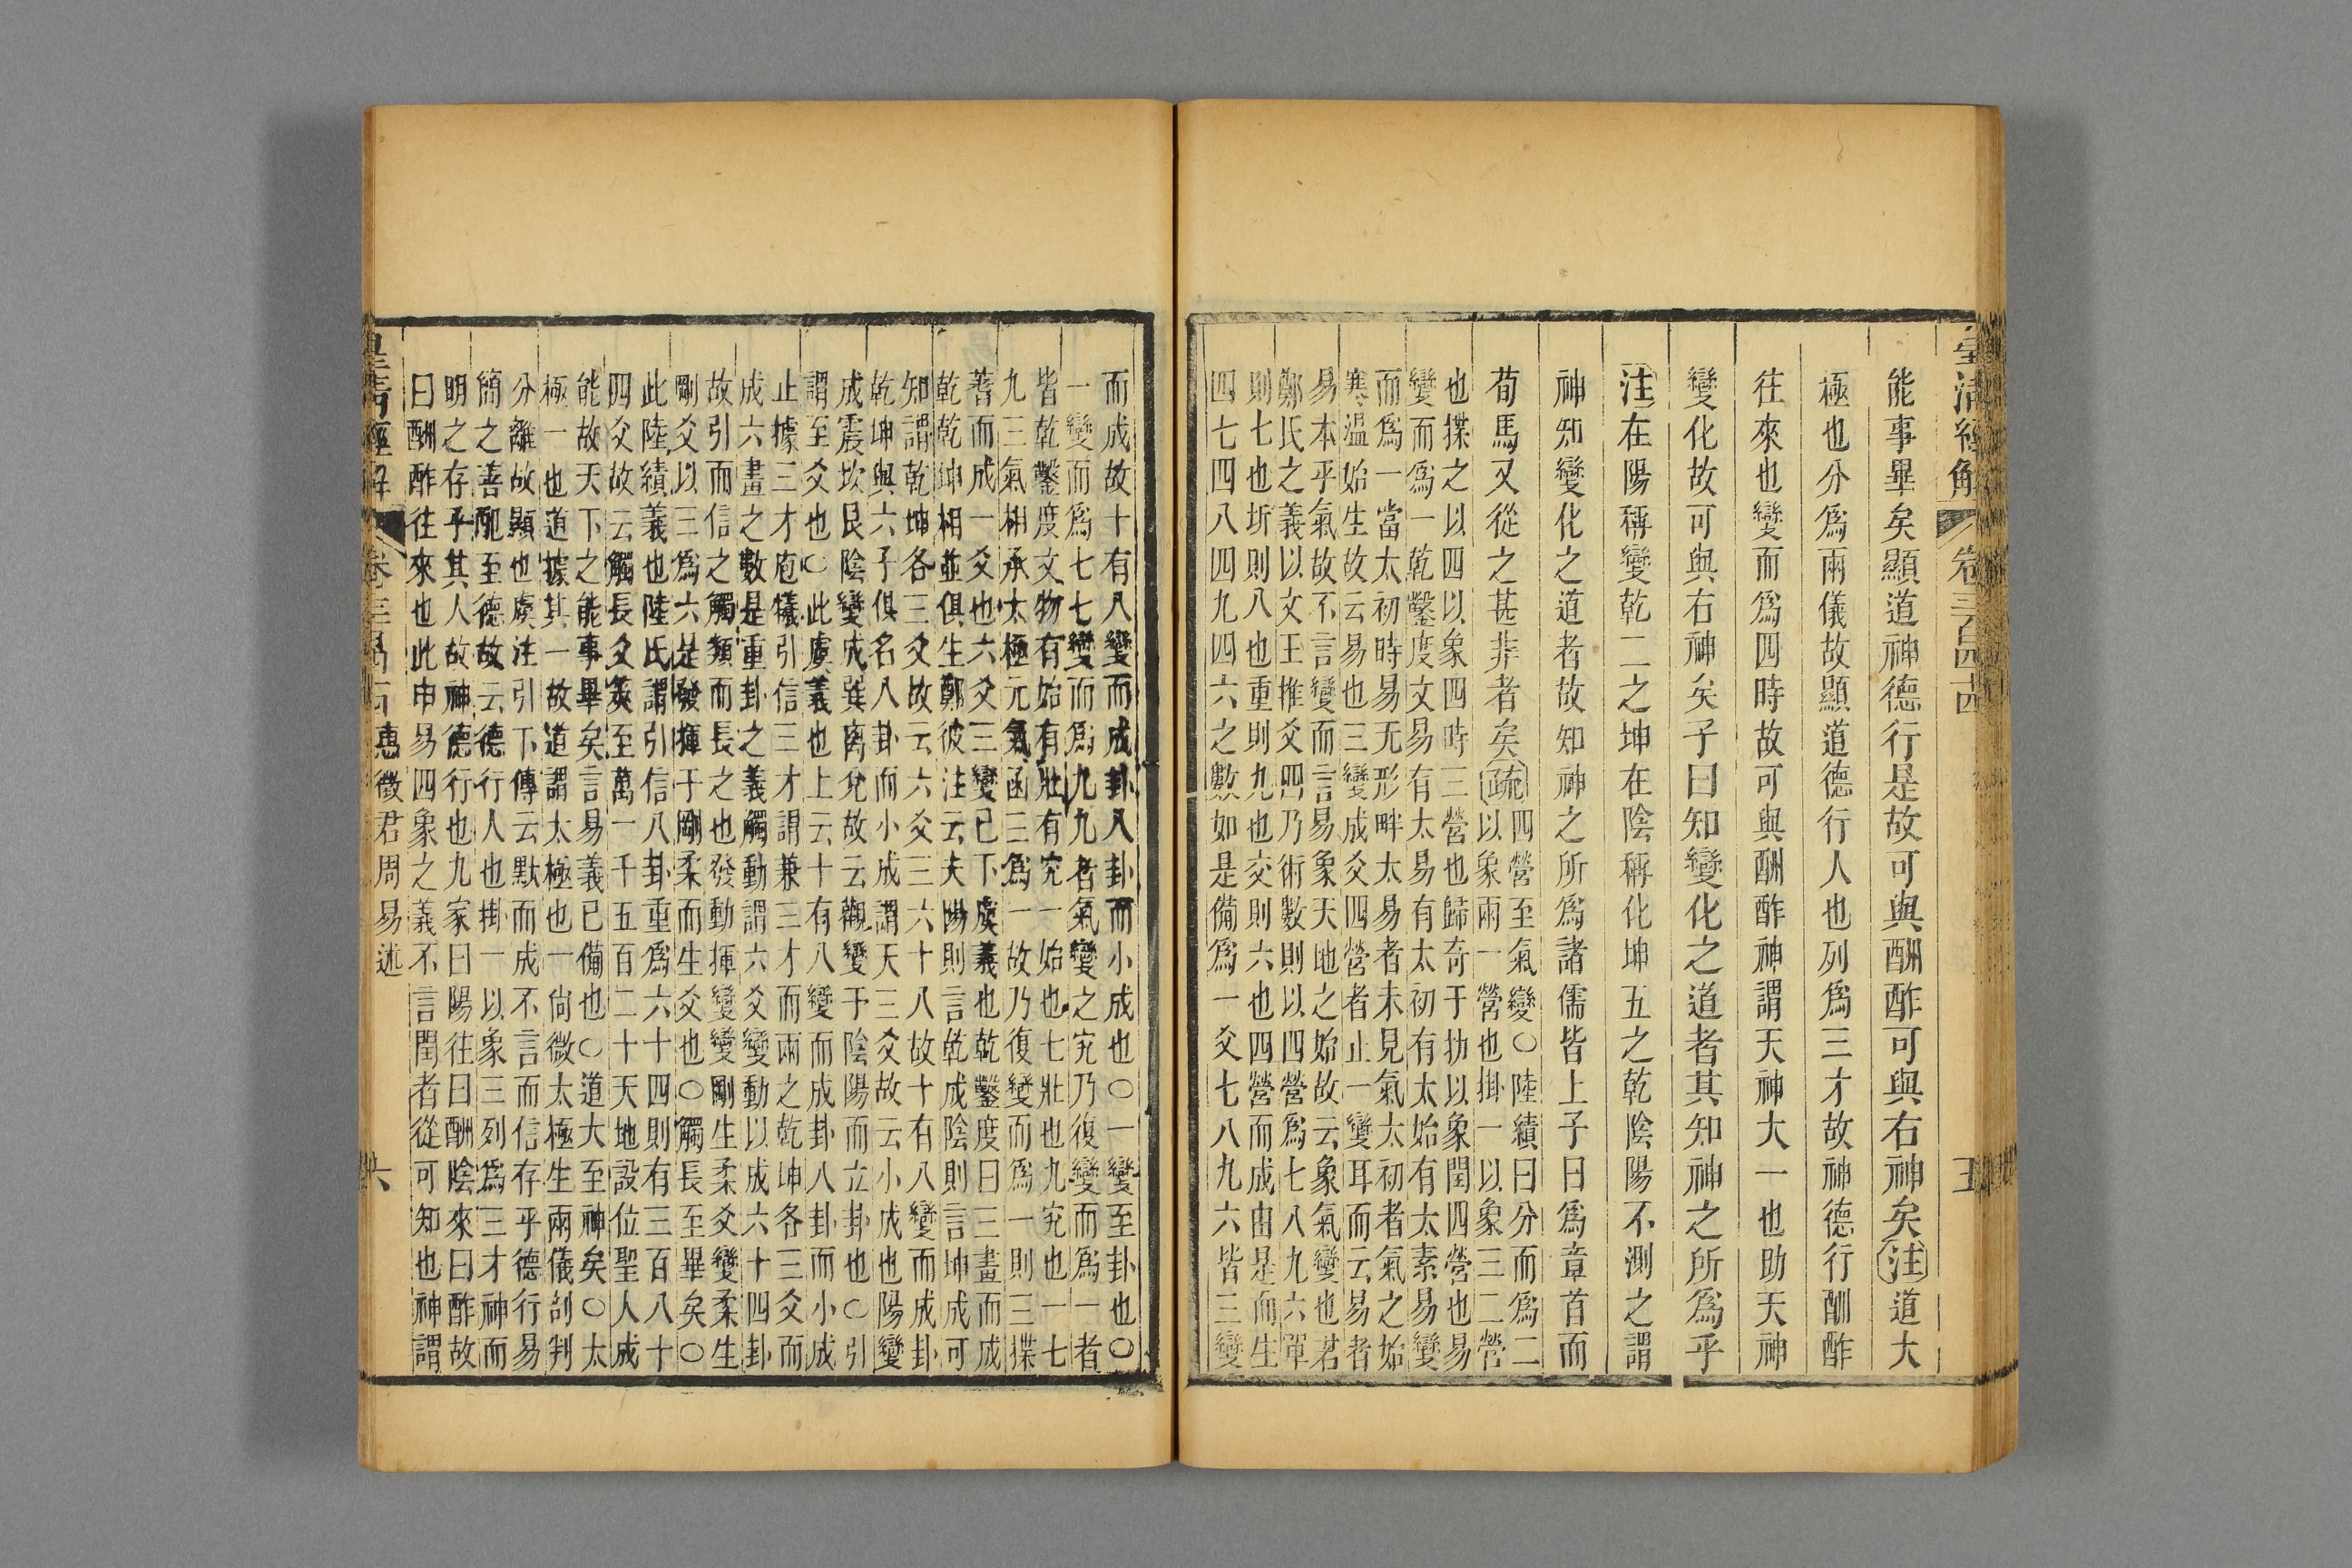 能事畢矣顯道神德行是故可與酬酢可與右神矣注道大
極也分爲兩儀故顯道德行人也列爲三才故神德行酬酢
往來也變而爲四時故可與酬酢神謂天神大一也助天神
變化故可與右神矣子曰知變化之道者其知神之所爲乎
注在陽稱變乾二之坤在陰稱化坤五之乾陰陽不測之謂
神知變化之道者故知神之所爲諸儒皆上子曰爲章首而
荀馬又從之甚非者矣疏四營至氣變○陸績曰分而爲二
以象兩一營也掛一以象三二營
也揲之以四以象四時三營也歸奇于扐以象閏四營也易
變而爲一乾鑿度文易有太易有太初有太始有太素易變
而爲一當太初時易无形畔太易者未見氣太初者氣之始
寒温始生故云易也三變成爻四營者止一變耳而云易者
易本乎氣故不言變而言易象天地之始故云象氣變也若
鄭氏之義以文王推爻四乃術數則以四營爲七八九六單
則七也坼則八也重則九也交則六也四營而成由是而生
四七四八四九四六之數如是備爲一爻七八九六皆三變
而成故十有八變而成卦八卦而小成也○一變至卦也○
一變而爲七七變而爲九九者氣變之究乃復變而爲一者
皆乾鑿度文物有始有壯有究一始也七壯也九究也一七
九三氣相承太極元氣函三爲一故乃復變而爲一則三揲
善而成一爻也六爻三變已下虞義也乾鑿度曰三畫而成
乾乾坤相並俱生鄭彼注云夫陽則言乾成陰則言坤成可
知謂乾坤各三爻故云六爻三六十八故十有八變而成卦
乾坤與六子俱名八卦而小成謂天三爻故云小成也陽變
成震坎艮陰變成巽离兌故云觀變于陰陽而立卦也○引
謂至爻也○此虞義也上云十有八變而成卦八卦而小成
止據三才庖犧引信三才謂兼三才而兩之乾坤各三爻而
成六畫之數是重卦之義觸動謂六爻變動以成六十四卦
故引而信之觸類而長之也發動揮變變剛生柔爻變柔生
剛爻以三爲六是發揮于剛柔而生爻也○觸長至畢矣○
此陸績義也陸氏謂引信八卦重爲六十四則有三百八十
四爻故云觸長爻筴至萬一千五百二十天地設位聖人成
能故天下之能事畢矣言易義已備也○道大至神矣○太
極一也道據其一故道謂太極也一尙微太極生兩儀剖判
分離故顯也虞注引下傳云默而成不言而信存乎德行易
簡之善配至德故云德行人也掛一以象三列爲三才神而
明之存乎其人故神德行也九家曰陽往曰酬陰來曰酢故
曰酬酢往來也此申易四象之義不言閏者從可知也神謂
惠徵君周易述